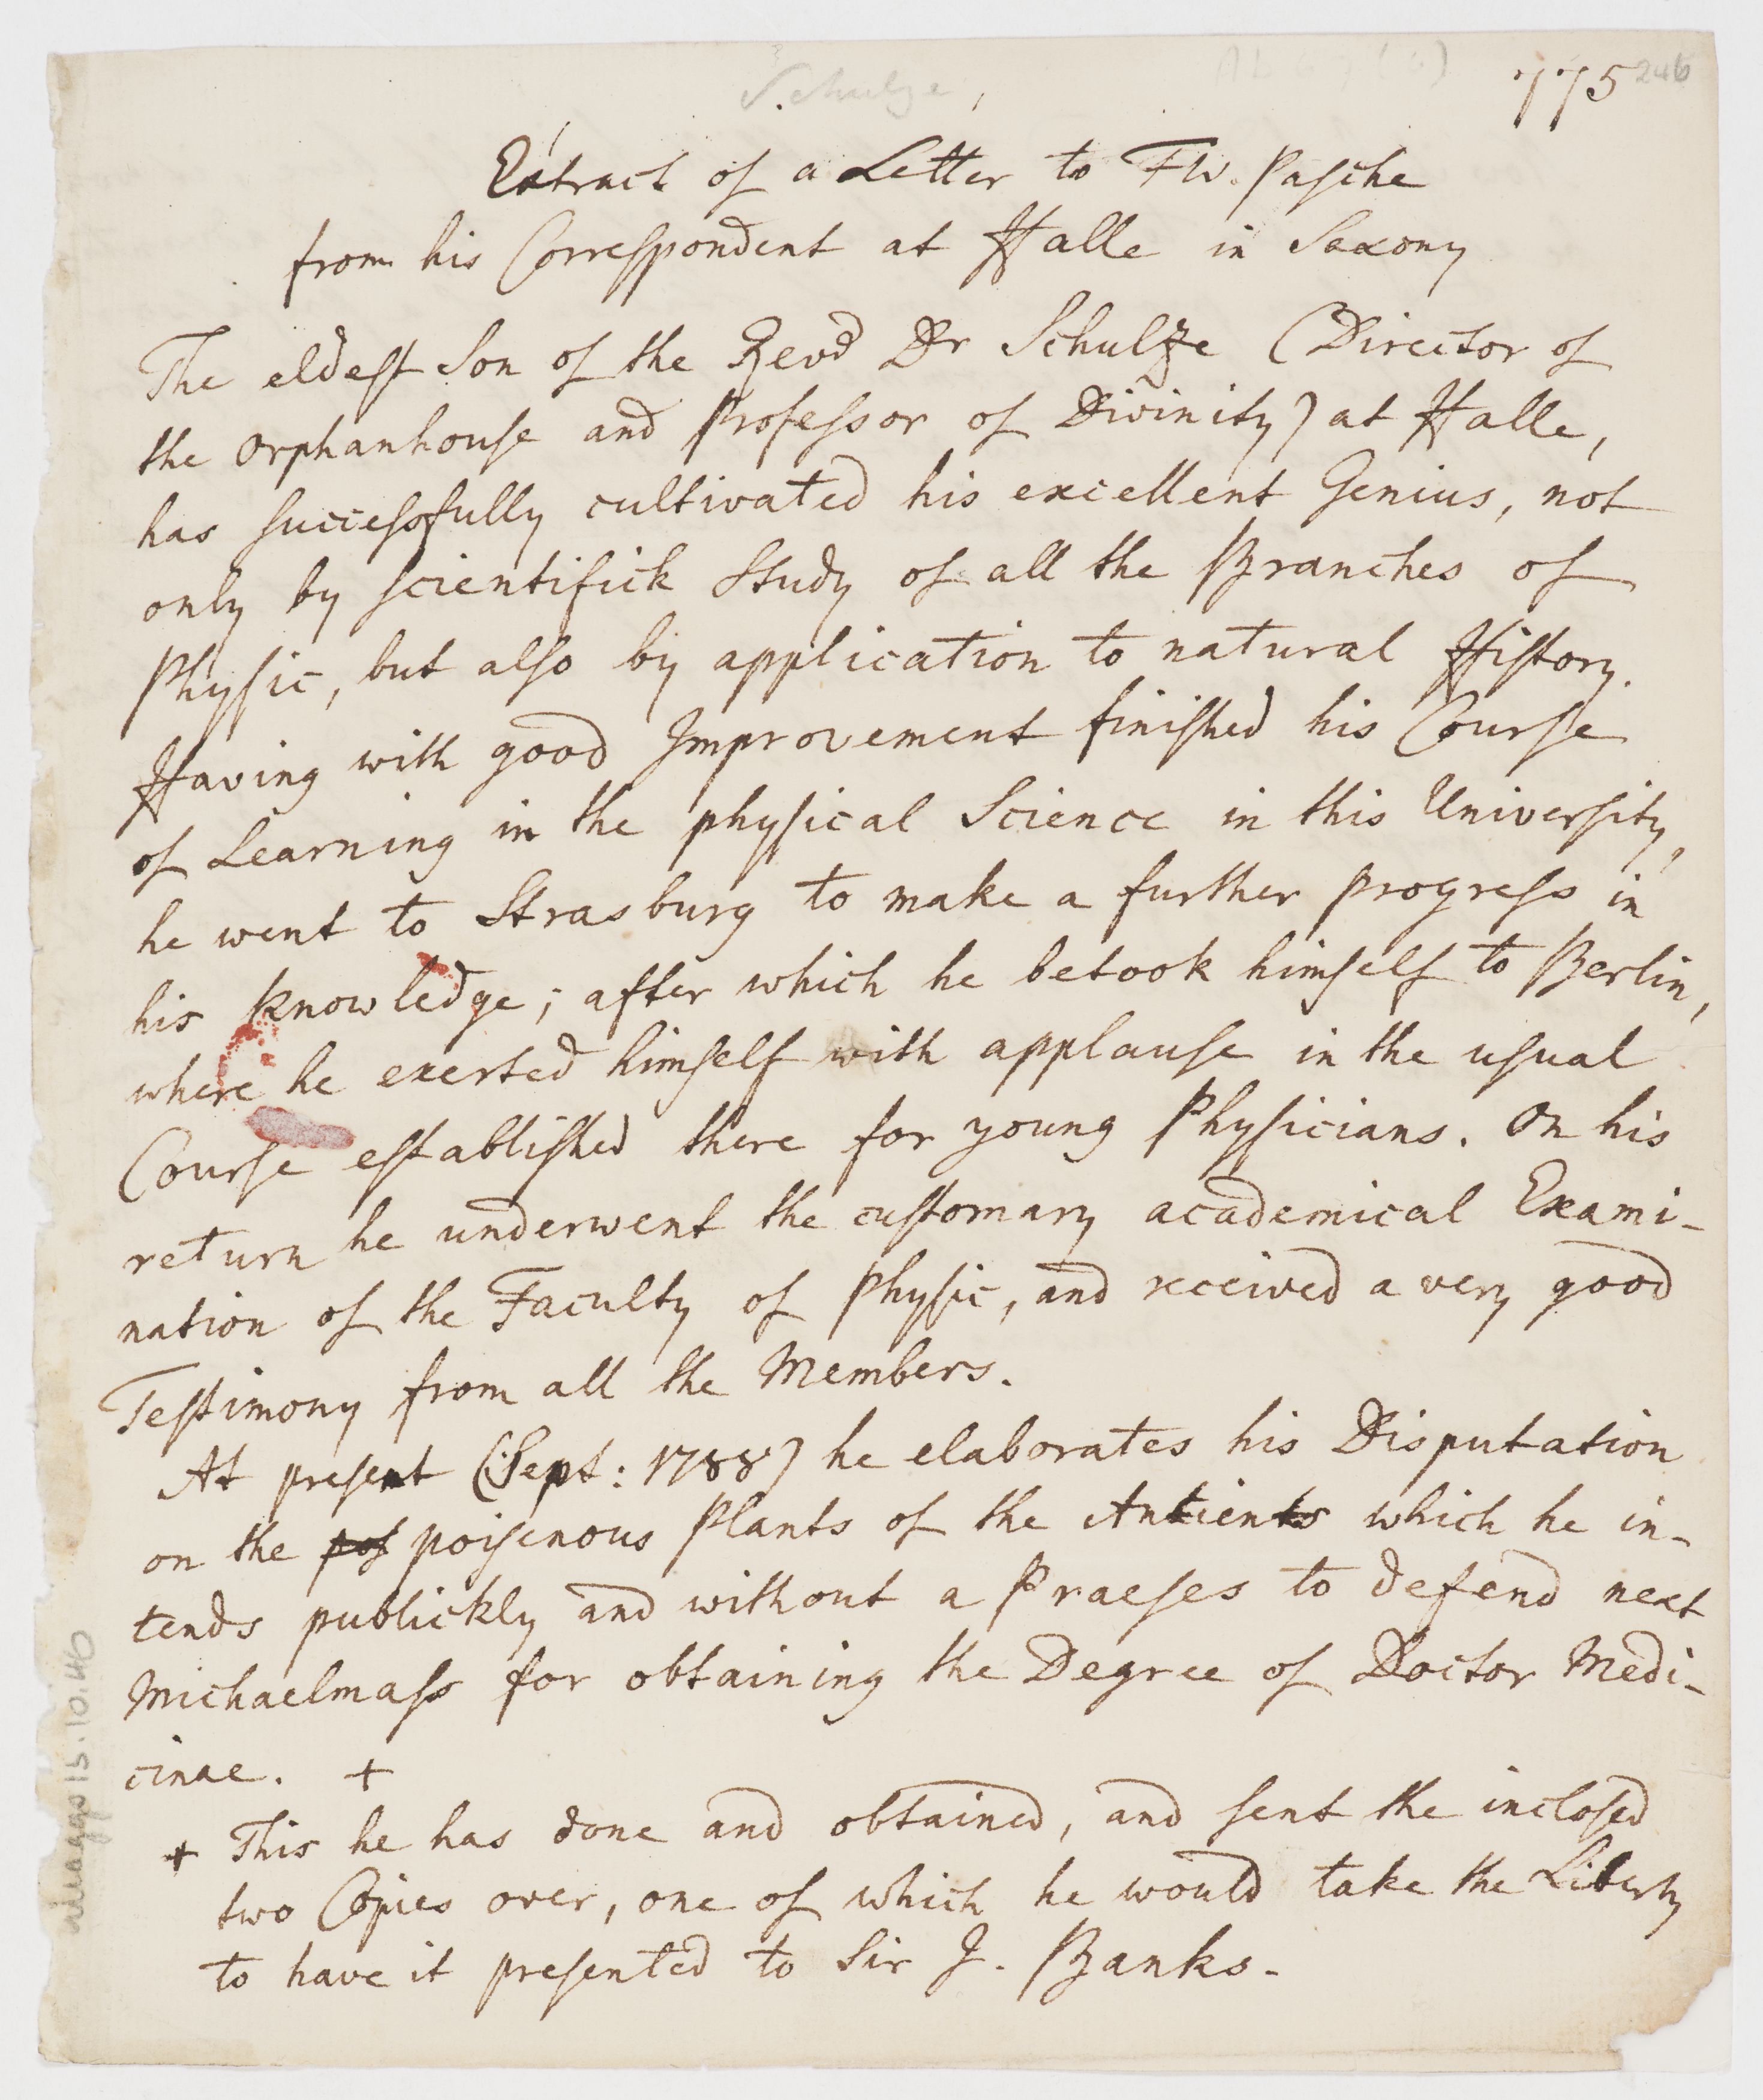 Schulze,
775 246
Extract of a Letter to FW. Pasche
from his Correspondent at Halle in Saxony
The eldest Son of the Revd Dr Schulze (Director of
the Orphanhouse and Professor of Divinity) at Halle,
has successfully cultivated his excellent Genius, not
only by scientifick Study of all the Branches of
Physic, but also by application to natural History.
Having with good Improvement finished his Course
of Learning in the physical Science in this University,
he went to Strasburg to make a further progress in
his knowledge; after which he betook himself to Berlin,
where he exerted himself with applause in the usual
Course established there for young Physicians. On his
return he underwent the customary academical Exami-
nation of the Faculty of Physic, and received a very good
Testimony from all the Members.
At present (Sept: 1788) he elaborates his Disputation
on the pos poisenous Plants of the Antients which he in-
tends publickly and without a Praeses to defend next
Michaelmass for obtaining the Degree of Doctor Medi-
cinae. +
+ This he has done and obtained, and sent the inclosed
two Copies over, one of which he would take the Liberty
to have it presented to Sir J. Banks.
Maggs 15.10.46